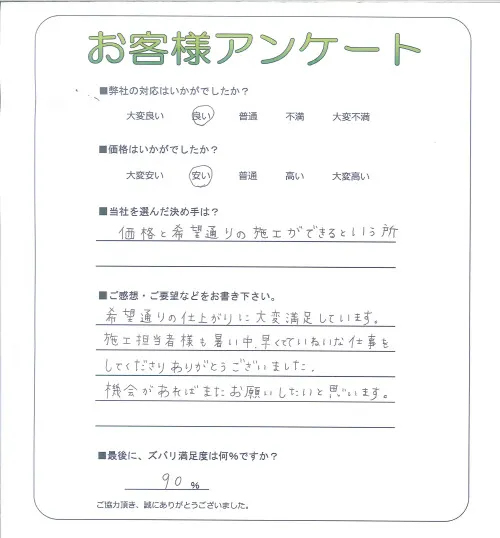 お客様アンケート
■弊社の対応はいかがでしたか？
大変良い 良い 普通 不満 大変不満
■価格はいかがでしたか？
大変安い 安い 普通 高い 大変高い
■当社を選んだ決め手は？
価格と希望通りの施工ができるという所
■ご感想・ご要望などをお書き下さい。
希望通りの仕上がりに大変満足しています。
施工担当者様も暑い中、早くてていねいな仕事を
してくださりありがとうございました。
機会があればまたお願いしたいと思います。
■最後に、ズバリ満足度は何％ですか？
90 %
ご協力頂き、誠にありがとうございました。